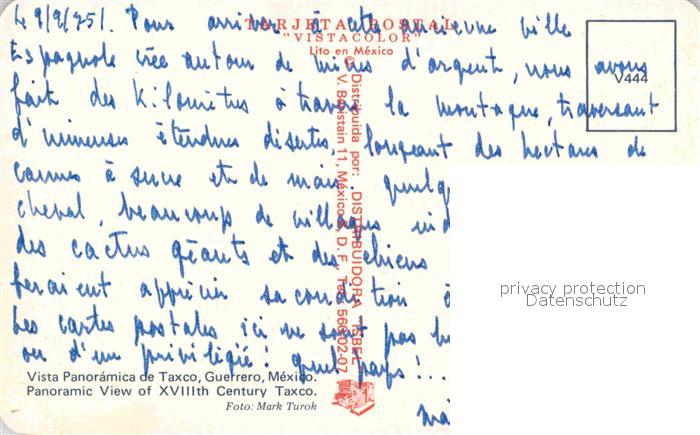 TARJETA POSTAL
"VISTACOLOR"
Lito en México
V444
Le 9/9/75/. Pour arriver à cette ancienne ville
Espagnole créée autour de mines d'argent, nous avons
fait des Kilomètres à travers la montagne, traversant
d'immenses étendues désertes, longeant des hectares de
cannes à sucre et de maïs.
cheval, beaucoup de villages
des cactus géants et des chiens
feraient apprécier sa condition
Les cartes postales ici ne sont pas
ou d'un privilégié! quel pays!...
Distribuida por: DISTRIBUIDORA ISBEL
V. 11, México D. F., Tel. 566-02-07
Vista Panorámica de Taxco, Guerrero, México.
Panoramic View of XVIIIth Century Taxco.
Foto: Mark Turok
privacy protection
Datenschutz